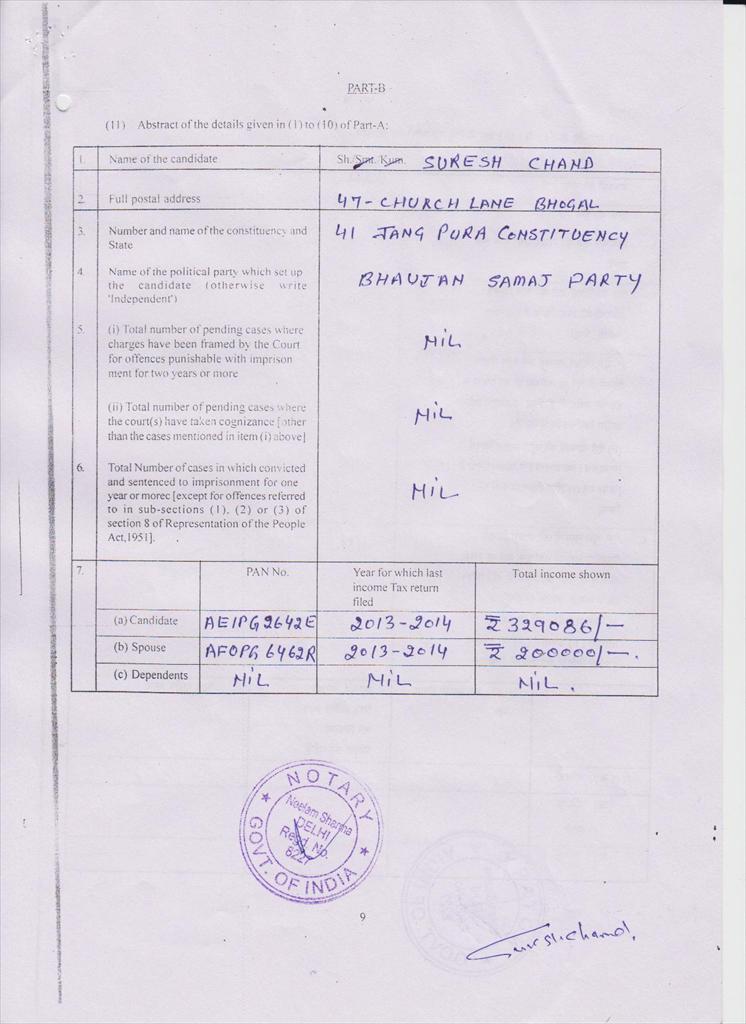 PART-B
(11) Abstract of the details given in (1) to (10) of Part-A:
1. Name of the candidate Sh./Smt./Kum. SURESH CHAND
2. Full postal address 47-CHURCH LANE BHOGAL
3. Number and name of the constituency and
State
41 JANG PURA CONSTITUENCY
4. Name of the political party which set up
the candidate (otherwise write
'Independent')
BHAUJAN SAMAJ PARTY
5. (i) Total number of pending cases where
charges have been framed by the Court
for offences punishable with imprison
ment for two years or more
NiL
(ii) Total number of pending cases where
the court(s) have taken cognizance [other
than the cases mentioned in item (i) above]
NiL
6. Total Number of cases in which convicted
and sentenced to imprisonment for one
year or morec [except for offences referred
to in sub-sections (1), (2) or (3) of
section 8 of Representation of the People
Act,1951].
NiL
7. PAN No. Year for which last
income Tax return
filed
Total income shown
(a) Candidate AEIPG2642E 2013-2014 ₹ 329086/-
(b) Spouse AFOPG6462R 2013-2014 ₹ 200000/-.
(c) Dependents NiL NiL NiL.
NOTARY
Neelam Sharma
DELHI
Regd. No.
6227
GOVT. OF INDIA
9
Sureshchand.